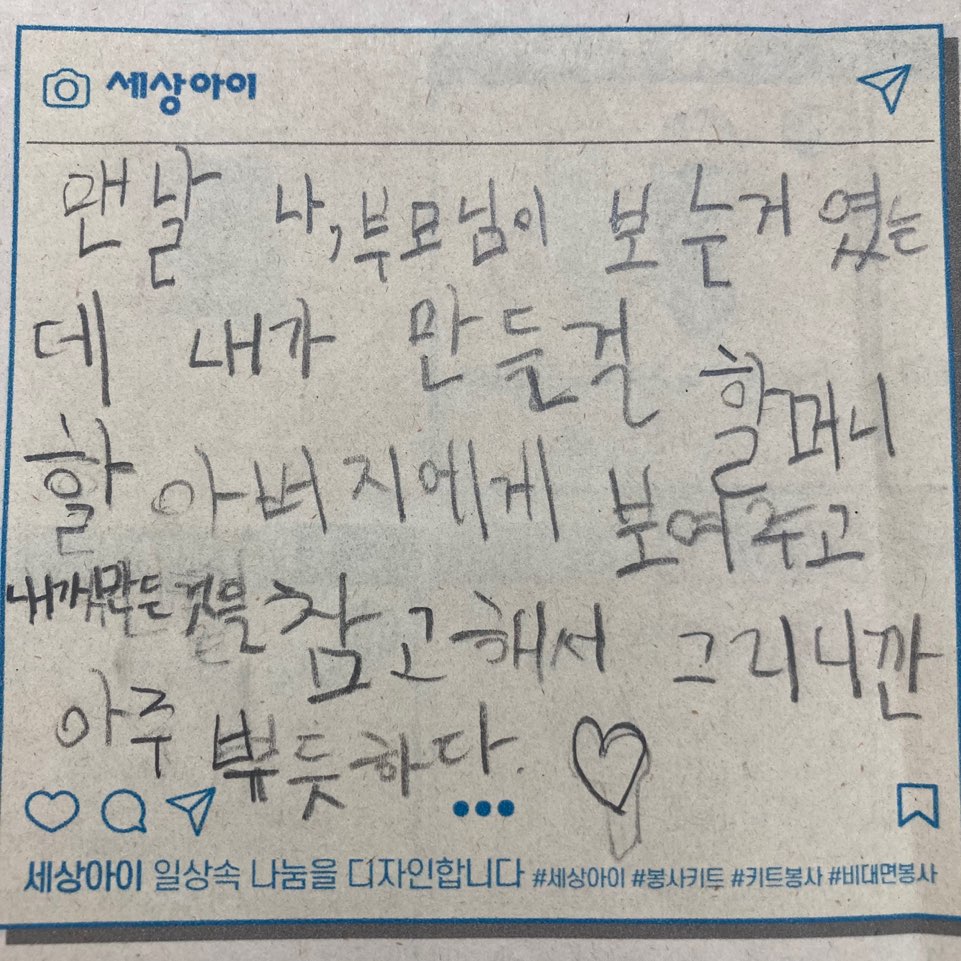 세상아이
맨날 나, 부모님이 보는거 였는
데 내가 만든걸 할머니
할아버지에게 보여주고
내가 만든것을 참고해서 그리니깐
아주 뿌듯하다. ♡
세상아이 일상속 나눔을 디자인합니다 #세상아이 #봉사키트 #키트봉사 #비대면봉사